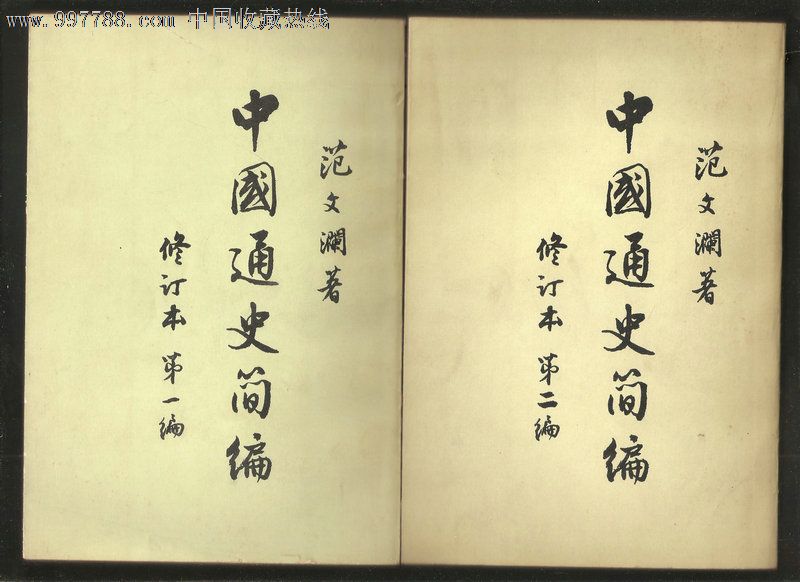 www.997788.com 中国收藏热线
范文瀾著
中國通史简编
修订本 第一编
范文瀾著
中國通史简编
修订本 第二编